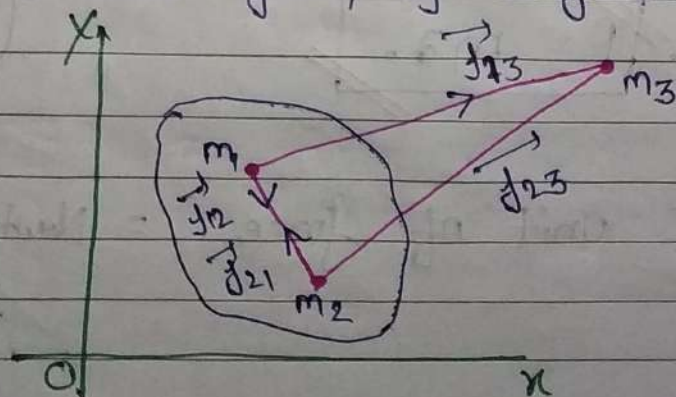 Y
f13
m3
m1
f23
f12
f21
m2
O
x